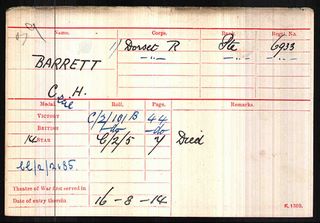 Name. Corps. Rank. Regtl. No.
1/ Dorset R Pte 6933
BARRETT
C. H.
Medal. Roll. Page. Remarks.
VICTORY C/2/101 B 44
BRITISH -do- -do-
14 STAR C/2/5 7 Died
Theatre of War first served in
Date of entry therein 16-8-14
K. 1380.